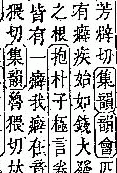 芳辟切集韻韻會匹
有癖疾始如錢大發
之根抱朴子極言卷
皆有一癖我癖在章
猥切集韻魯猥切𠀤